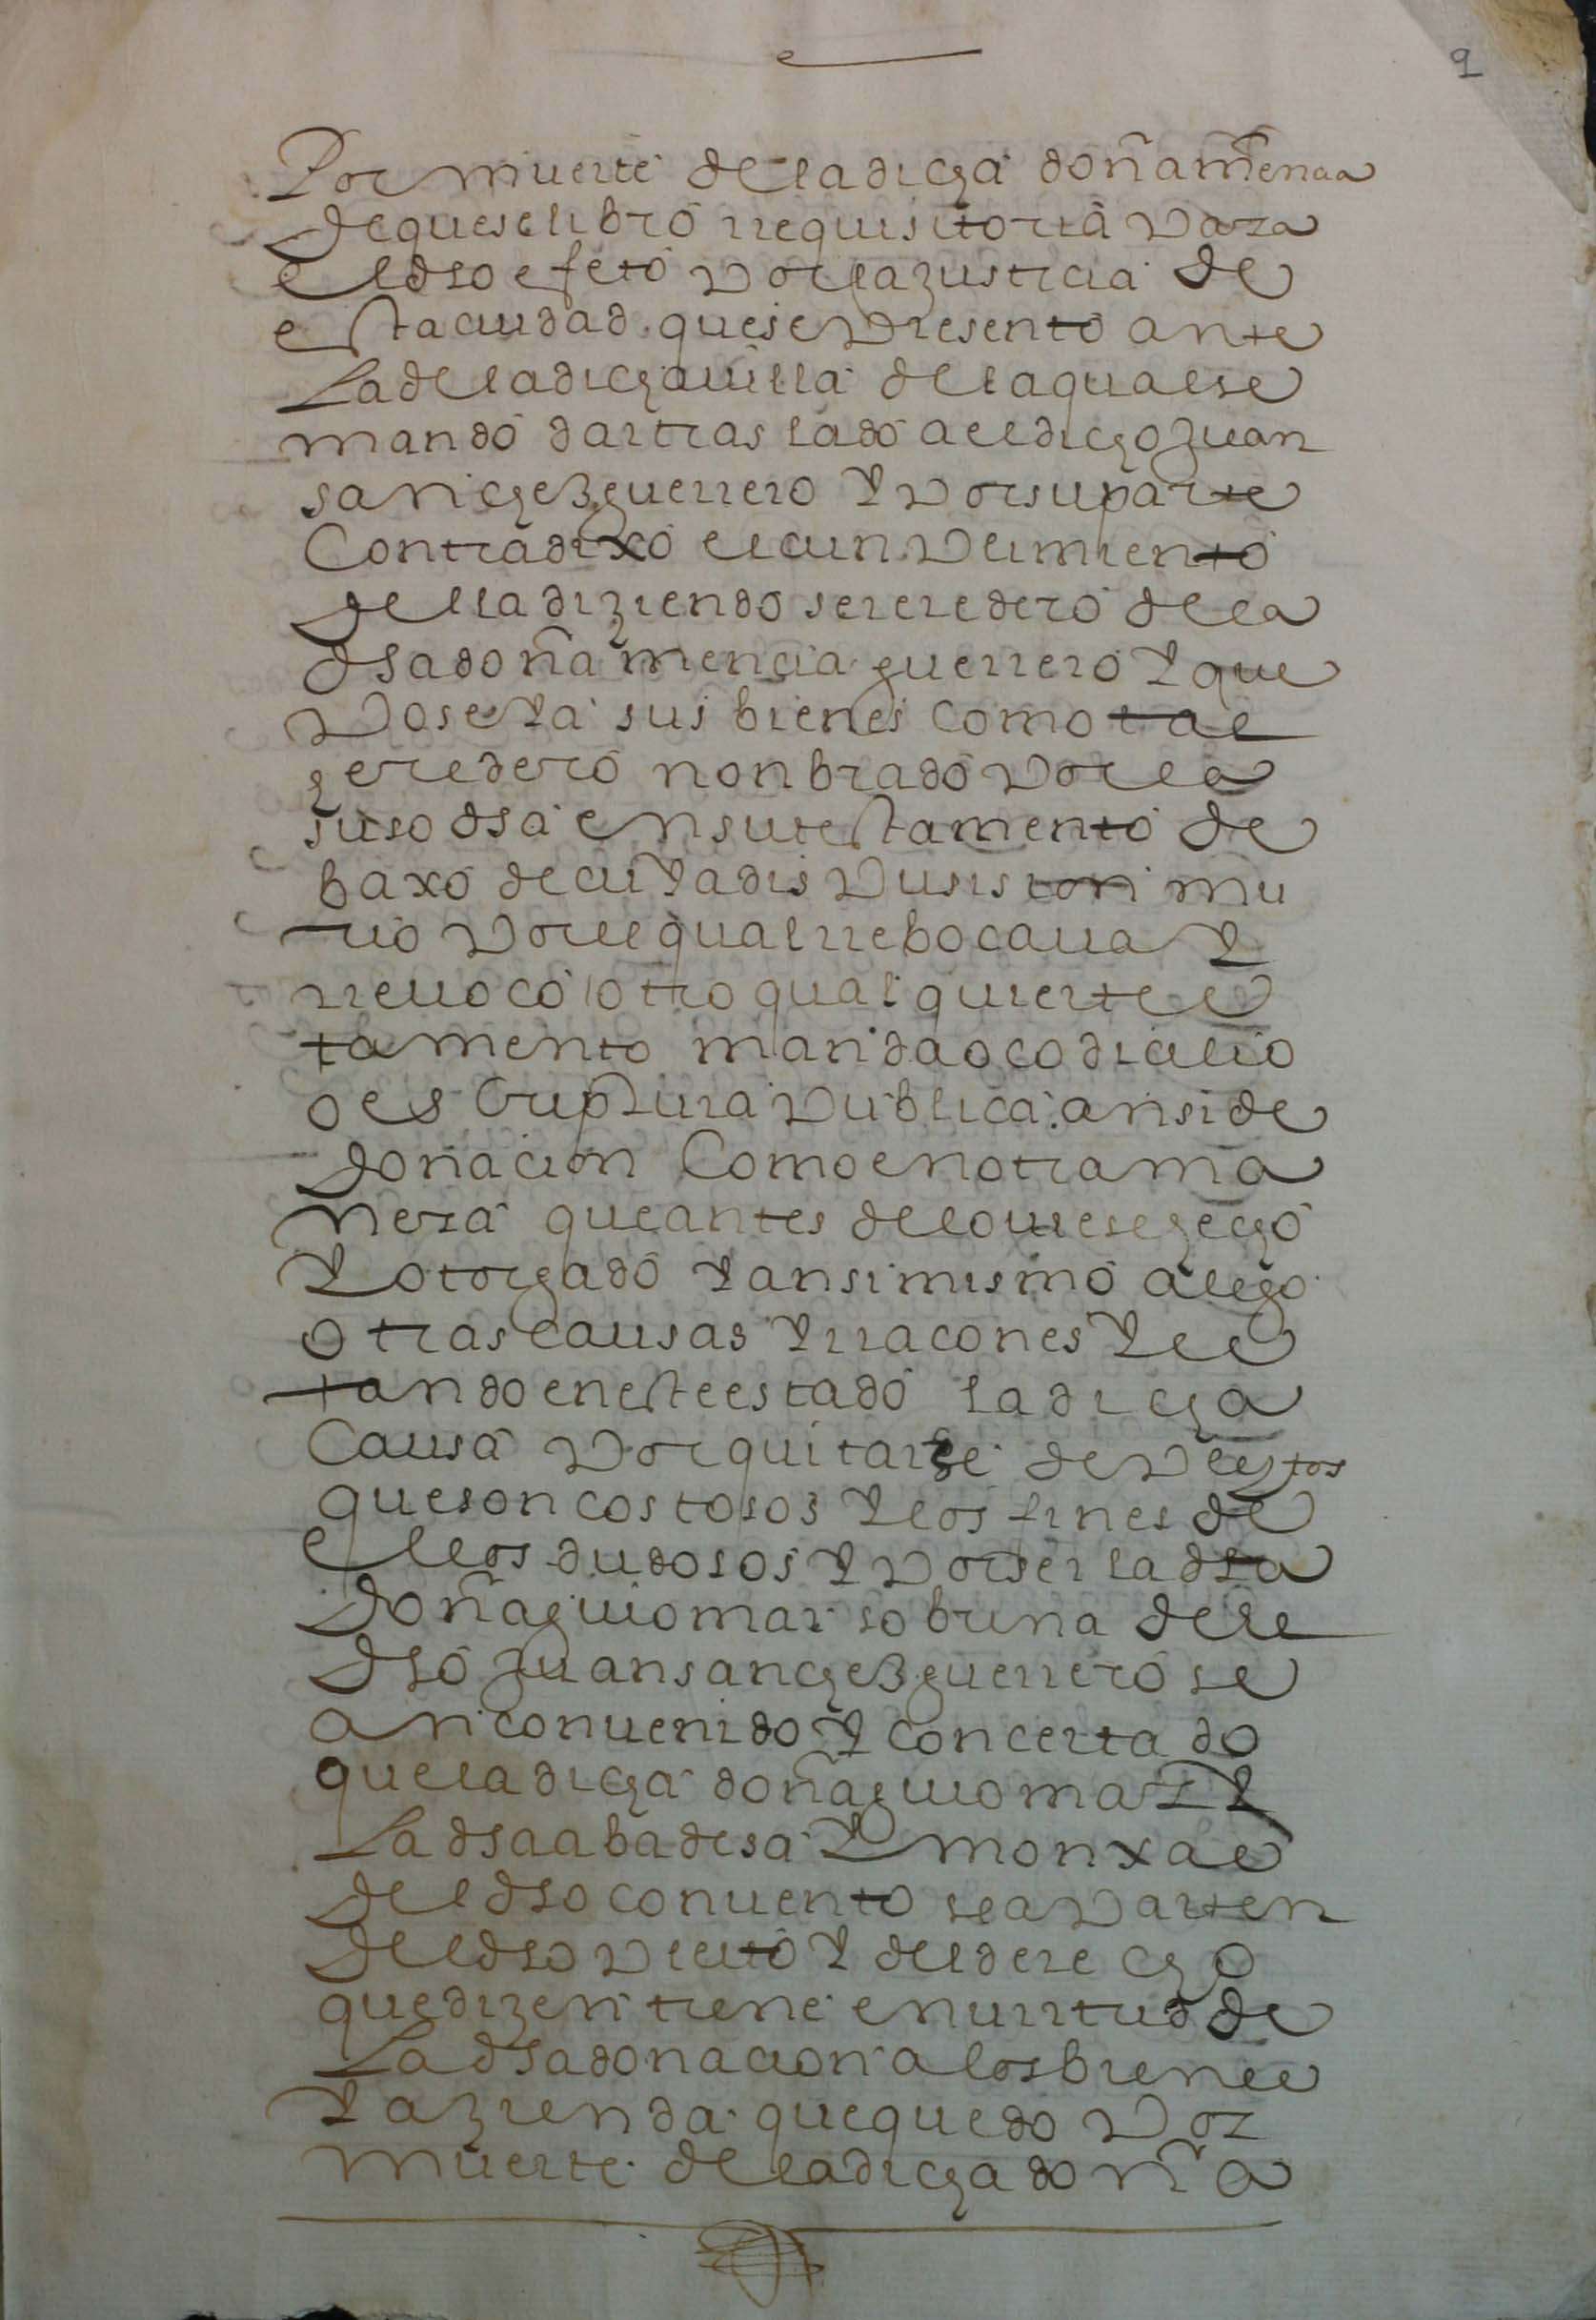 9
Por muerte de la dicha doña mencia
de que se libro rrequisitoria para
el dho efeto por la justicia de
esta ciudad que se presento ante
la de la dicha uilla de la qual se
mando dar traslado a el dicho juan
sanchez guerrero y por su parte
contradixo el cunplimiento
della diziendo ser eredero de la
dha doña mencia guerrero y que
poseya sus bienes como tal
heredero nonbrado por la
susodha en su testamento de
baxo de cuya dispusision mu
rio por el qual rrebocaua y
rreuoco otro qualquier tes
tamento manda o codicilio
o escriptura publica ansi de
donacion como en otra ma
nera que antes del ouiese hecho
y otorgado y ansimismo alego
otras causas y rracones y es
tando en este estado la dicha
causa por quitarse de pleytos
que son costosos y los fines de
ellos dudosos y por ser la dha
doña guiomar sobrina del
dho juan sanchez guerrero se
an conuenido y concertado
que la dicha doña guiomar y
la dha abadesa y monxas
del dho conuento se aparten
del dho pleito y del derecho
que dizen tiene en uirtud de
la dha donacion a los bienes
y azienda que quedo por
muerte de la dicha doña